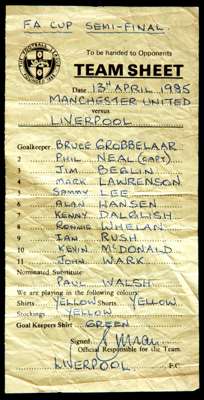 FA CUP SEMI-FINAL
THE FOOTBALL LEAGUE
To be handed to Opponents
TEAM SHEET
Date 13th APRIL 1985
MANCHESTER UNITED
versus
LIVERPOOL
Goalkeeper BRUCE GROBBELAAR
2 PHIL NEAL (CAPT)
3 JIM BEGLIN
4 MARK LAWRENSON
5 SAMMY LEE
6 ALAN HANSEN
7 KENNY DALGLISH
8 RONNIE WHELAN
9 IAN RUSH
10 KEVIN McDONALD
11 JOHN WARK
Nominated Substitute
PAUL WALSH
We are playing in the following colours:
Shirts YELLOW Shorts YELLOW
Stockings YELLOW
Goal Keepers Shirt GREEN
Signed
Official Responsible for the Team.
LIVERPOOL F.C